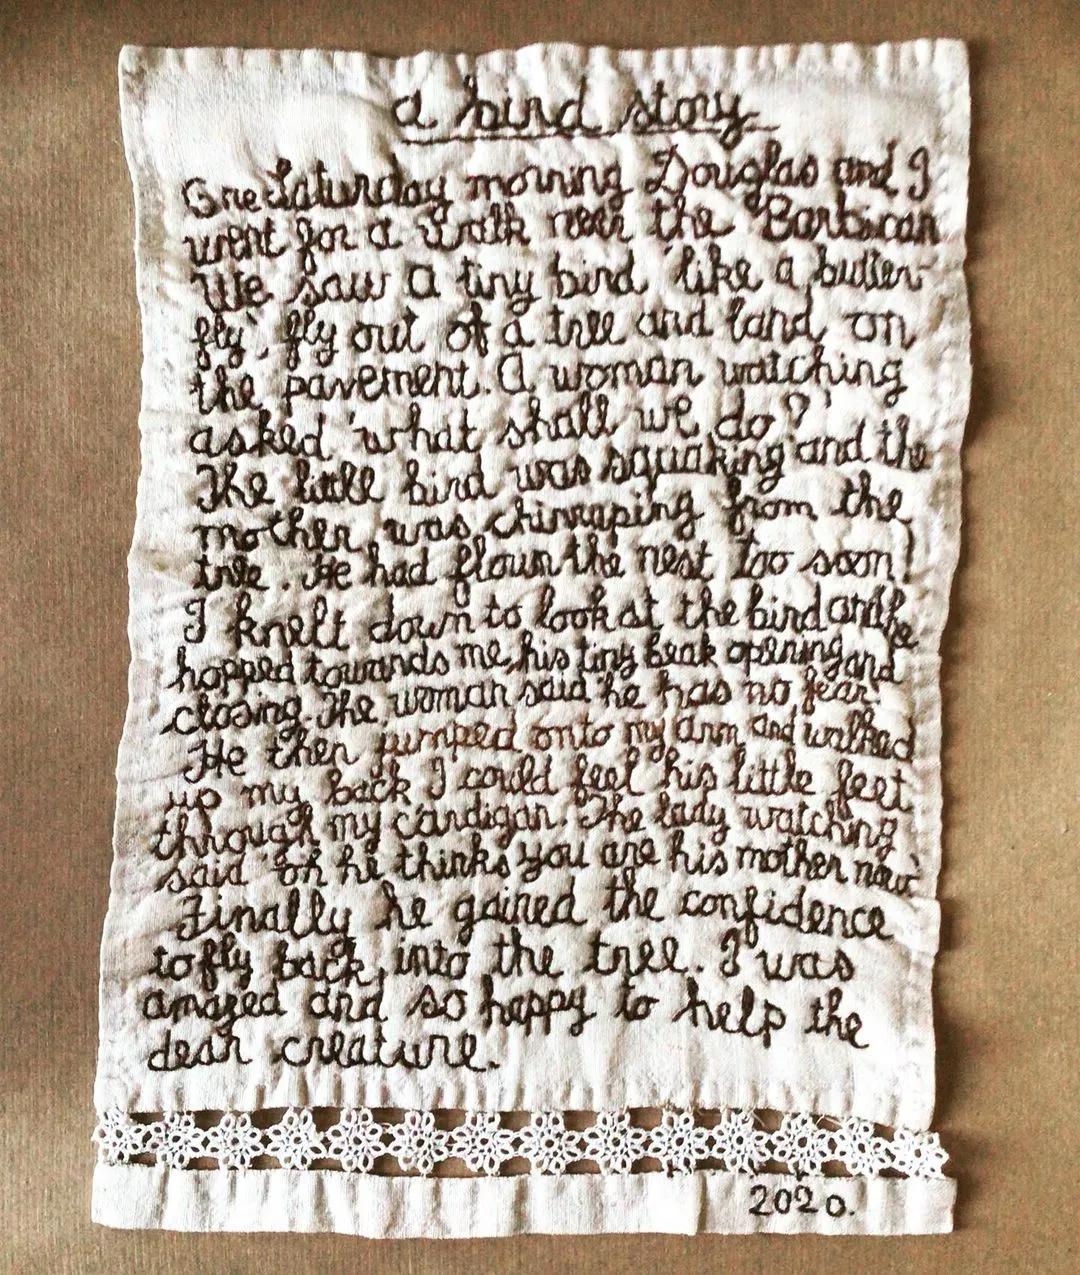 a bird story
One Saturday morning Douglas and I
went for a walk near the Barbican
We saw a tiny bird 'like a butter
fly', fly out of a tree and land on
the pavement. A woman watching
asked 'what shall we do?'
The little bird was squaking and the
mother was chirraping from the
tree. He had flown the nest too soon!
I knelt down to look at the bird and he
hopped towards me, his tiny beak opening and
closing. The woman said 'he has no fear'
He then jumped onto my arm and walked
up my back I could feel his little feet
through my cardigan. The lady watching
said 'oh he thinks you are his mother now'
Finally he gained the confidence
to fly back into the tree. I was
amazed and so happy to help the
dear creature.
2020.